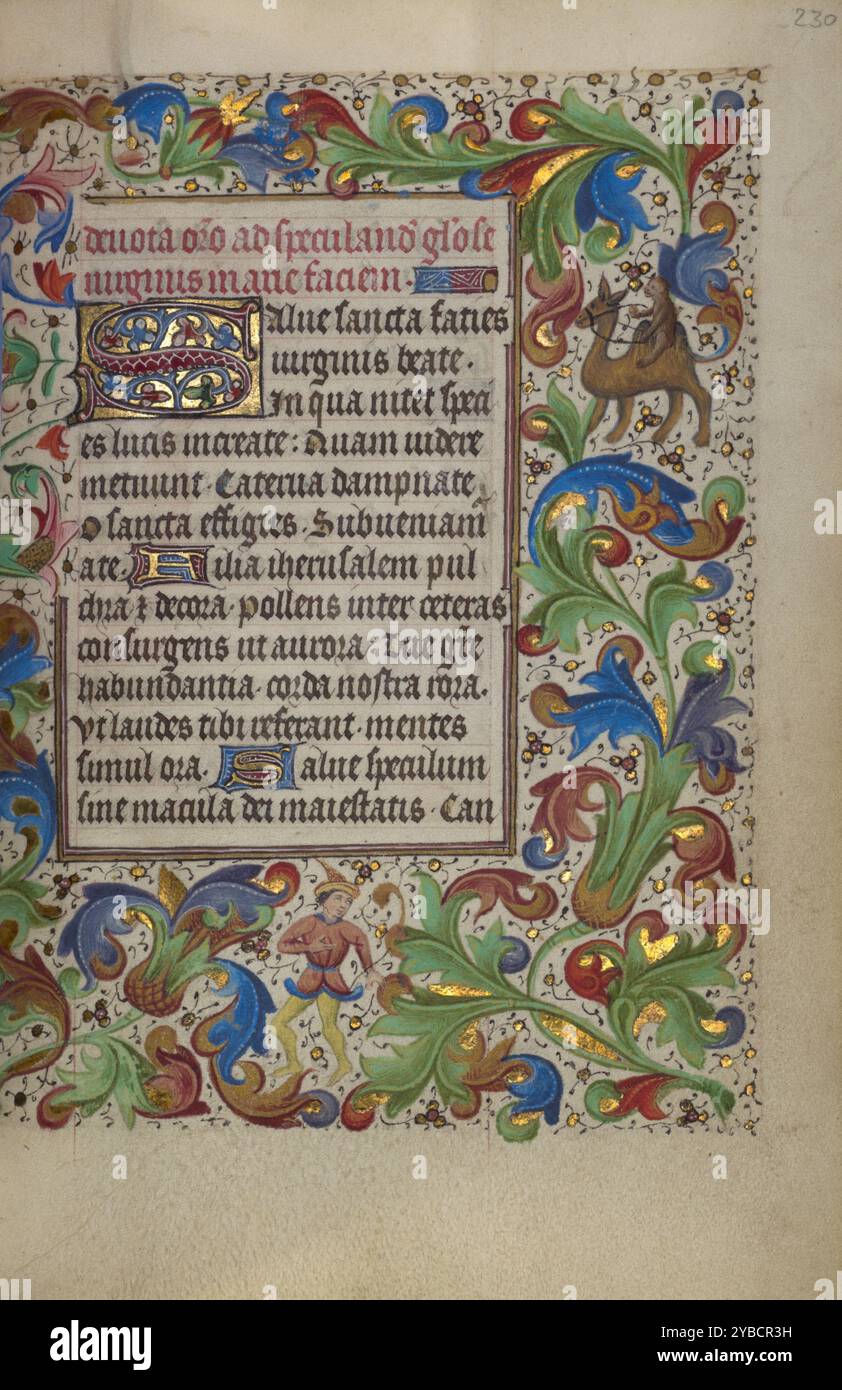 230
deuota oro ad speculand glose
uirginis marie faciem.
Salue sancta facies
uirginis beate.
In qua nitet speci
es lucis increate: Quam uidere
metuunt. Caterua dampnate
O sancta effigies. Subueniam
ate. Filia iherusalem pul
chra & decora. pollens inter ceteras
consurgens ut aurora: Tue gle
habundantia. corda nostra rora.
Vt laudes tibi referant. mentes
simul ora. Salue speculum
sine macula dei maiestatis. Can
alamy
Image ID: 2YBCR3H
www.alamy.com